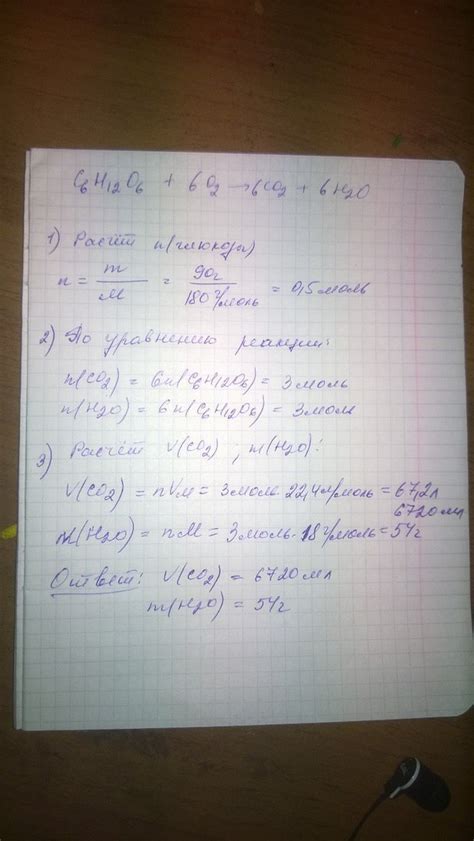 C6H12O6 + 6O2 → 6CO2 + 6H2O
1) Расчёт n(глюкозы)
n = m/M = 90г/180г/моль = 0,5моль
2) По уравнению реакции:
n(CO2) = 6n(C6H12O6) = 3моль
n(H2O) = 6n(C6H12O6) = 3моль
3) Расчёт V(CO2) ; m(H2O):
V(CO2) = nVм = 3моль·22,4л/моль = 67,2л
6720мл
m(H2O) = nM = 3моль·18г/моль = 54г
Ответ: V(CO2) = 6720мл
m(H2O) = 54г